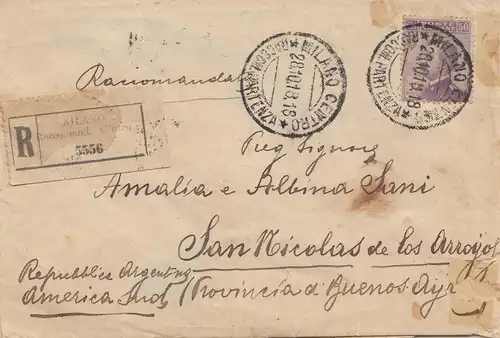 50
MILANO CENTRO
28.10.18.18
RACCOM. PARTENZA
MILANO CENTRO
28.10.18.18
RACCOM. PARTENZA
Raccomandata
R
MILANO
5556
Preg Signore
Amalia e Albina Sani
San Nicolas de los Arroyos
Repubblica Argentina
America Sud, Provincia d Buenos Ayr